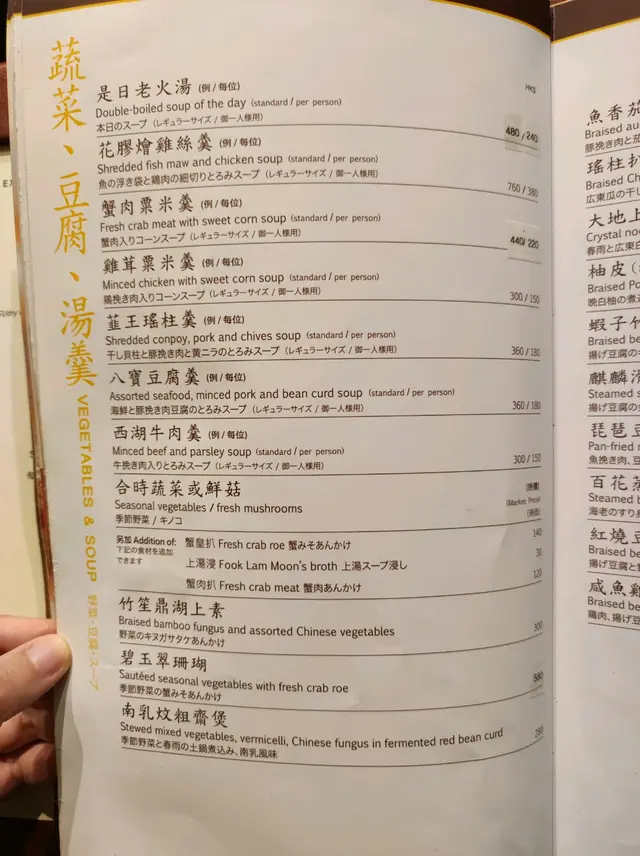 蔬菜、豆腐、湯羹 VEGETABLES & SOUP 野菜・豆腐・スープ
HK$
是日老火湯 (例 / 每位)
Double-boiled soup of the day (standard / per person) 480 / 240
本日のスープ (レギュラーサイズ / 御一人様用)
花膠燴雞絲羹 (例 / 每位)
Shredded fish maw and chicken soup (standard / per person) 760 / 380
魚の浮き袋と鶏肉の細切りとろみスープ (レギュラーサイズ / 御一人様用)
蟹肉粟米羹 (例 / 每位)
Fresh crab meat with sweet corn soup (standard / per person) 440 / 220
蟹肉入りコーンスープ (レギュラーサイズ / 御一人様用)
雞茸粟米羹 (例 / 每位)
Minced chicken with sweet corn soup (standard / per person) 300 / 150
鶏挽き肉入りコーンスープ (レギュラーサイズ / 御一人様用)
韮王瑤柱羹 (例 / 每位)
Shredded conpoy, pork and chives soup (standard / per person) 360 / 180
干し貝柱と豚挽き肉と黄ニラのとろみスープ (レギュラーサイズ / 御一人様用)
八寶豆腐羹 (例 / 每位)
Assorted seafood, minced pork and bean curd soup (standard / per person) 360 / 180
海鮮と豚挽き肉豆腐のとろみスープ (レギュラーサイズ / 御一人様用)
西湖牛肉羹 (例 / 每位)
Minced beef and parsley soup (standard / per person) 300 / 150
牛挽き肉入りとろみスープ (レギュラーサイズ / 御一人様用)
合時蔬菜或鮮菇 (時價)
Seasonal vegetables / fresh mushrooms (Market Price)
季節野菜 / キノコ (時価)
另加 Addition of: 蟹皇扒 Fresh crab roe 蟹みそあんかけ 140
下記の食材を追加
できます
上湯浸 Fook Lam Moon's broth 上湯スープ浸し 30
蟹肉扒 Fresh crab meat 蟹肉あんかけ 120
竹笙鼎湖上素
Braised bamboo fungus and assorted Chinese vegetables 300
野菜のキヌガサタケあんかけ
碧玉翠珊瑚
Sautéed seasonal vegetables with fresh crab roe 380
季節野菜の蟹みそあんかけ
南乳炆粗齋煲
Stewed mixed vegetables, vermicelli, Chinese fungus in fermented red bean curd 280
季節野菜と春雨の土鍋煮込み、南乳風味
魚香茄
Braised au
豚挽き肉と茄
瑤柱扒
Braised Ch
広東瓜の干し
大地上
Crystal noo
春雨と広東白
柚皮
Braised Po
晩白柚の煮
蝦子竹
Braised be
揚げ豆腐の
麒麟滑
Steamed s
揚げ豆腐の
琵琶豆
Pan-fried m
魚挽き肉、豆
百花蒸
Steamed b
海老のすり身
紅燒豆
Braised be
揚げ豆腐と野
咸魚雞
Braised be
鶏肉、揚げ豆